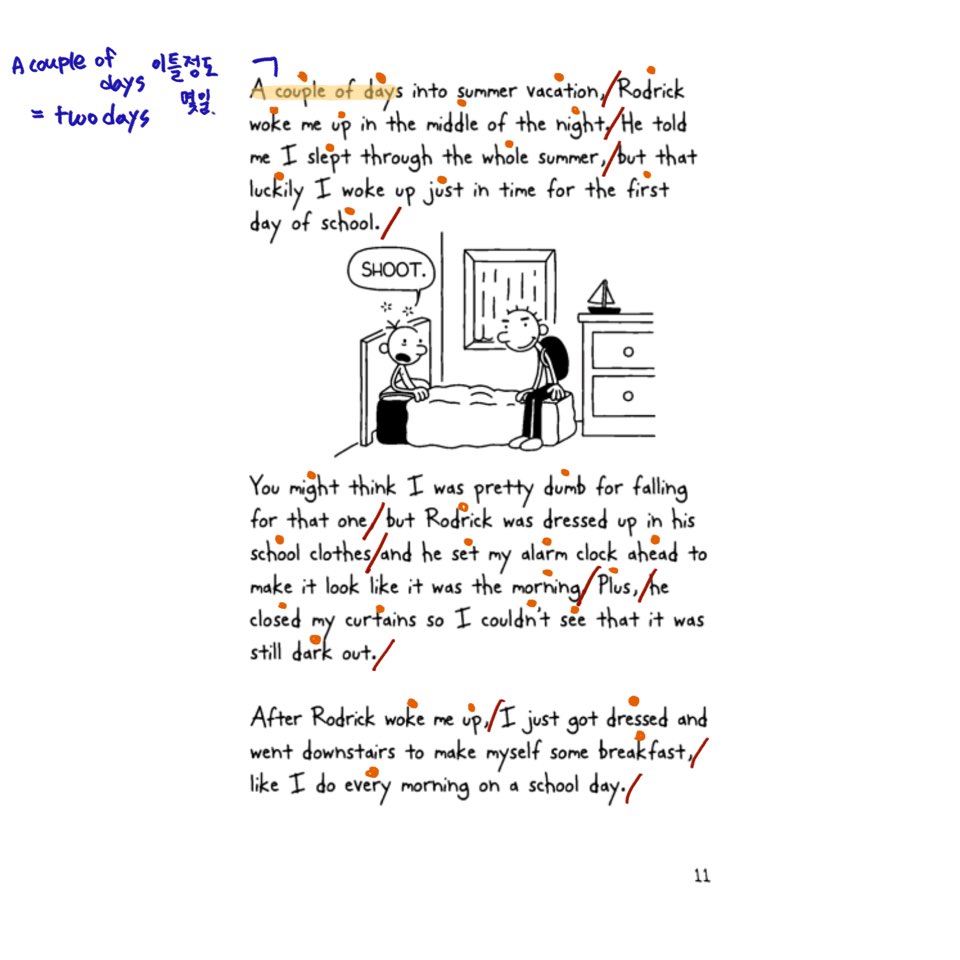 A couple of
days 이틀정도
= two days 몇일.
A couple of days into summer vacation, Rodrick
woke me up in the middle of the night. He told
me I slept through the whole summer, but that
luckily I woke up just in time for the first
day of school.
SHOOT.
You might think I was pretty dumb for falling
for that one, but Rodrick was dressed up in his
school clothes, and he set my alarm clock ahead to
make it look like it was the morning. Plus, he
closed my curtains so I couldn't see that it was
still dark out.
After Rodrick woke me up, I just got dressed and
went downstairs to make myself some breakfast,
like I do every morning on a school day.
11